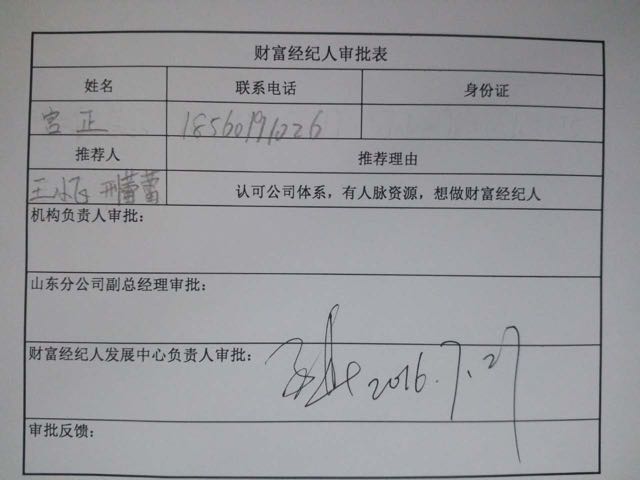 财富经纪人审批表
姓名 联系电话 身份证
宫正 18560191226
推荐人 推荐理由
王小飞 邢蕾蕾 认可公司体系，有人脉资源，想做财富经纪人
机构负责人审批：
山东分公司副总经理审批：
财富经纪人发展中心负责人审批： 2016.7.27
审批反馈：